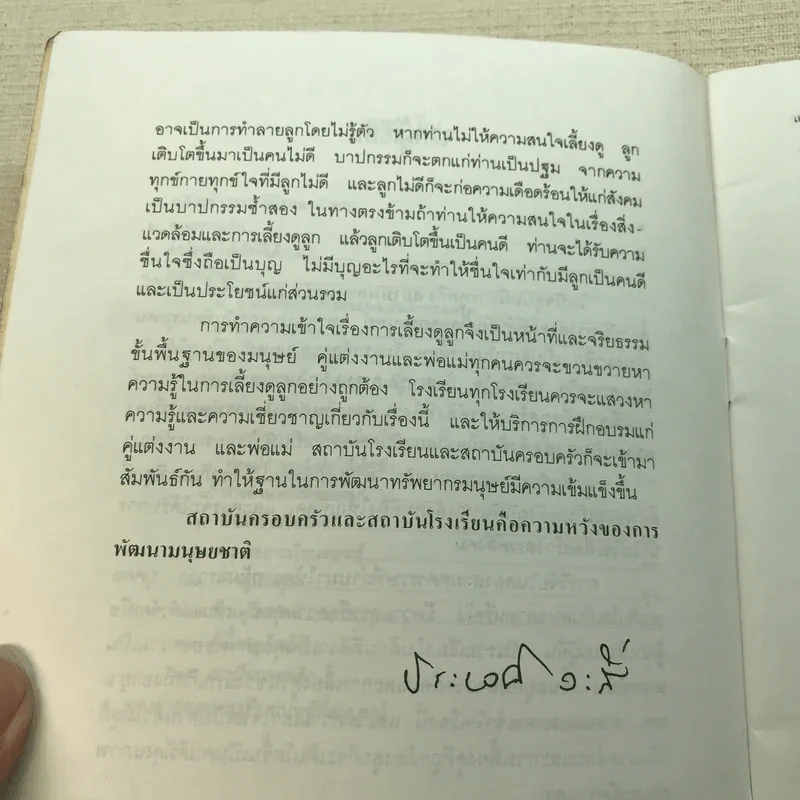 อาจเป็นการทำลายลูกโดยไม่รู้ตัว หากท่านไม่ให้ความสนใจเลี้ยงดู ลูก
เติบโตขึ้นมาเป็นคนไม่ดี บาปกรรมก็จะตกแก่ท่านเป็นปฐม จากความ
ทุกข์กายทุกข์ใจที่มีลูกไม่ดี และลูกไม่ดีก็จะก่อความเดือดร้อนให้แก่สังคม
เป็นบาปกรรมซ้ำสอง ในทางตรงข้ามถ้าท่านให้ความสนใจในเรื่องสิ่ง-
แวดล้อมและการเลี้ยงดูลูก แล้วลูกเติบโตขึ้นเป็นคนดี ท่านจะได้รับความ
ชื่นใจซึ่งถือเป็นบุญ ไม่มีบุญอะไรที่จะทำให้ชื่นใจเท่ากับมีลูกเป็นคนดี
และเป็นประโยชน์แก่ส่วนรวม
การทำความเข้าใจเรื่องการเลี้ยงดูลูกจึงเป็นหน้าที่และจริยธรรม
ขั้นพื้นฐานของมนุษย์ คู่แต่งงานและพ่อแม่ทุกคนควรจะขวนขวายหา
ความรู้ในการเลี้ยงดูลูกอย่างถูกต้อง โรงเรียนทุกโรงเรียนควรจะแสวงหา
ความรู้และความเชี่ยวชาญเกี่ยวกับเรื่องนี้ และให้บริการการฝึกอบรมแก่
คู่แต่งงาน และพ่อแม่ สถาบันโรงเรียนและสถาบันครอบครัวก็จะเข้ามา
สัมพันธ์กัน ทำให้ฐานในการพัฒนาทรัพยากรมนุษย์มีความเข้มแข็งขึ้น
สถาบันครอบครัวและสถาบันโรงเรียนคือความหวังของการ
พัฒนามนุษยชาติ
ประเวศ วะสี